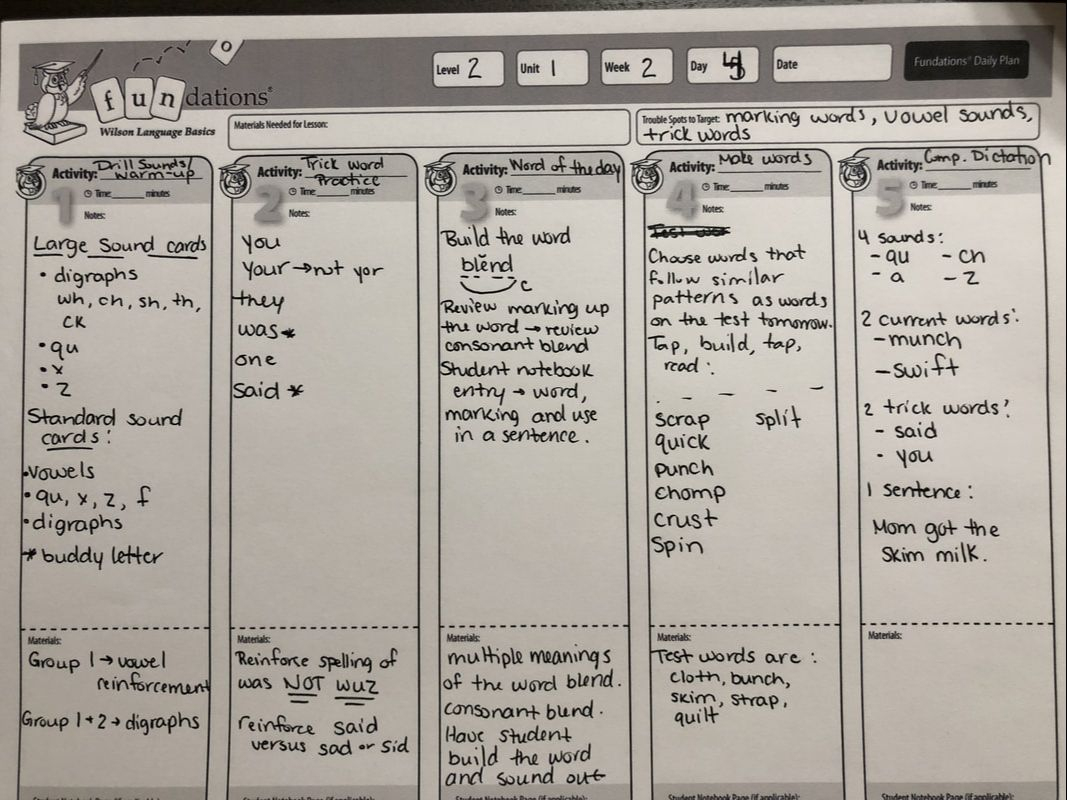 O
fundations®
Wilson Language Basics
Level 2
Unit 1
Week 2
Day 4
Date
Fundations® Daily Plan
Materials Needed for Lesson:
Trouble Spots to Target: marking words, vowel sounds,
trick words
1
Activity: Drill Sounds/
Warm-up
Time minutes
Notes:
Large Sound cards
• digraphs
wh, ch, sh, th,
ck
• qu
• x
• z
Standard sound
cards:
• vowels
• qu, x, z, f
• digraphs
* buddy letter
Materials:
Group 1 → vowel
reinforcement
Group 1 + 2 → digraphs
2
Activity: Trick Word
Practice
Time minutes
Notes:
you
your → not yor
they
was *
one
said *
Materials:
Reinforce spelling of
was NOT wuz
reinforce said
versus sad or sid
3
Activity: Word of the day
Time minutes
Notes:
Build the word
blĕnd
c
Review marking up
the word → review
consonant blend
Student notebook
entry → word,
marking and use
in a sentence.
Materials:
multiple meanings
of the word blend.
consonant blend.
Have student
build the word
and sound out
4
Activity: Make words
Time minutes
Notes:
Choose words that
follow similar
patterns as words
on the test tomorrow.
Tap, build, tap,
read:
scrap split
quick
punch
chomp
crust
spin
Materials:
Test words are:
cloth, bunch,
skim, strap,
quilt
5
Activity: Comp. Dictation
Time minutes
Notes:
4 sounds:
- qu - ch
- a - z
2 current words:
- munch
- swift
2 trick words:
- said
- you
1 sentence:
Mom got the
skim milk.
Materials:
Student Notebook Page (if applicable):
Student Notebook Page (if applicable):
Student Notebook Page (if applicable):
Student Notebook Page (if applicable):
Student Notebook Page (if applicable):